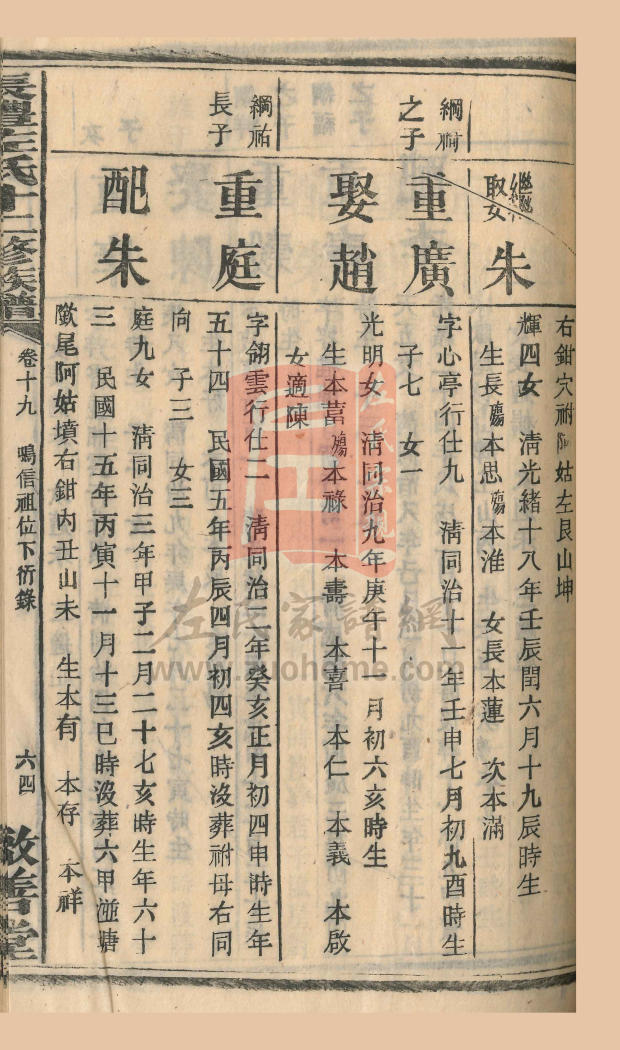 右鉗穴祔阿姑左艮山坤
繼娶朱
輝四女　清光緒十八年壬辰閏六月十九辰時生
生長殤本思殤本淮　女長本蓮　次本滿
之子
重廣
字心亭行仕九　清同治十一年壬申七月初九酉時生
子七　女一
娶趙
光明女　清同治九年庚午十一月初六亥時生
生本萻殤本祿　本壽　本喜　本仁　本義　本啟
女適陳
綱祐
長子
重庭
字翎雲行仕二　清同治二年癸亥正月初四申時生年
五十四　民國五年丙辰四月初四亥時沒葬祔母右同
向　子三　女三
配朱
庭九女　清同治三年甲子二月二十七亥時生年六十
三　民國十五年丙寅十一月十三巳時沒葬六甲塘
尾阿姑墳右鉗內丑山未　生本有　本存　本祥
長澧左氏十二修族譜
卷十九　鳴信祖位下衍錄
六四
敦善堂
左氏家譜網
www.zuohome.com